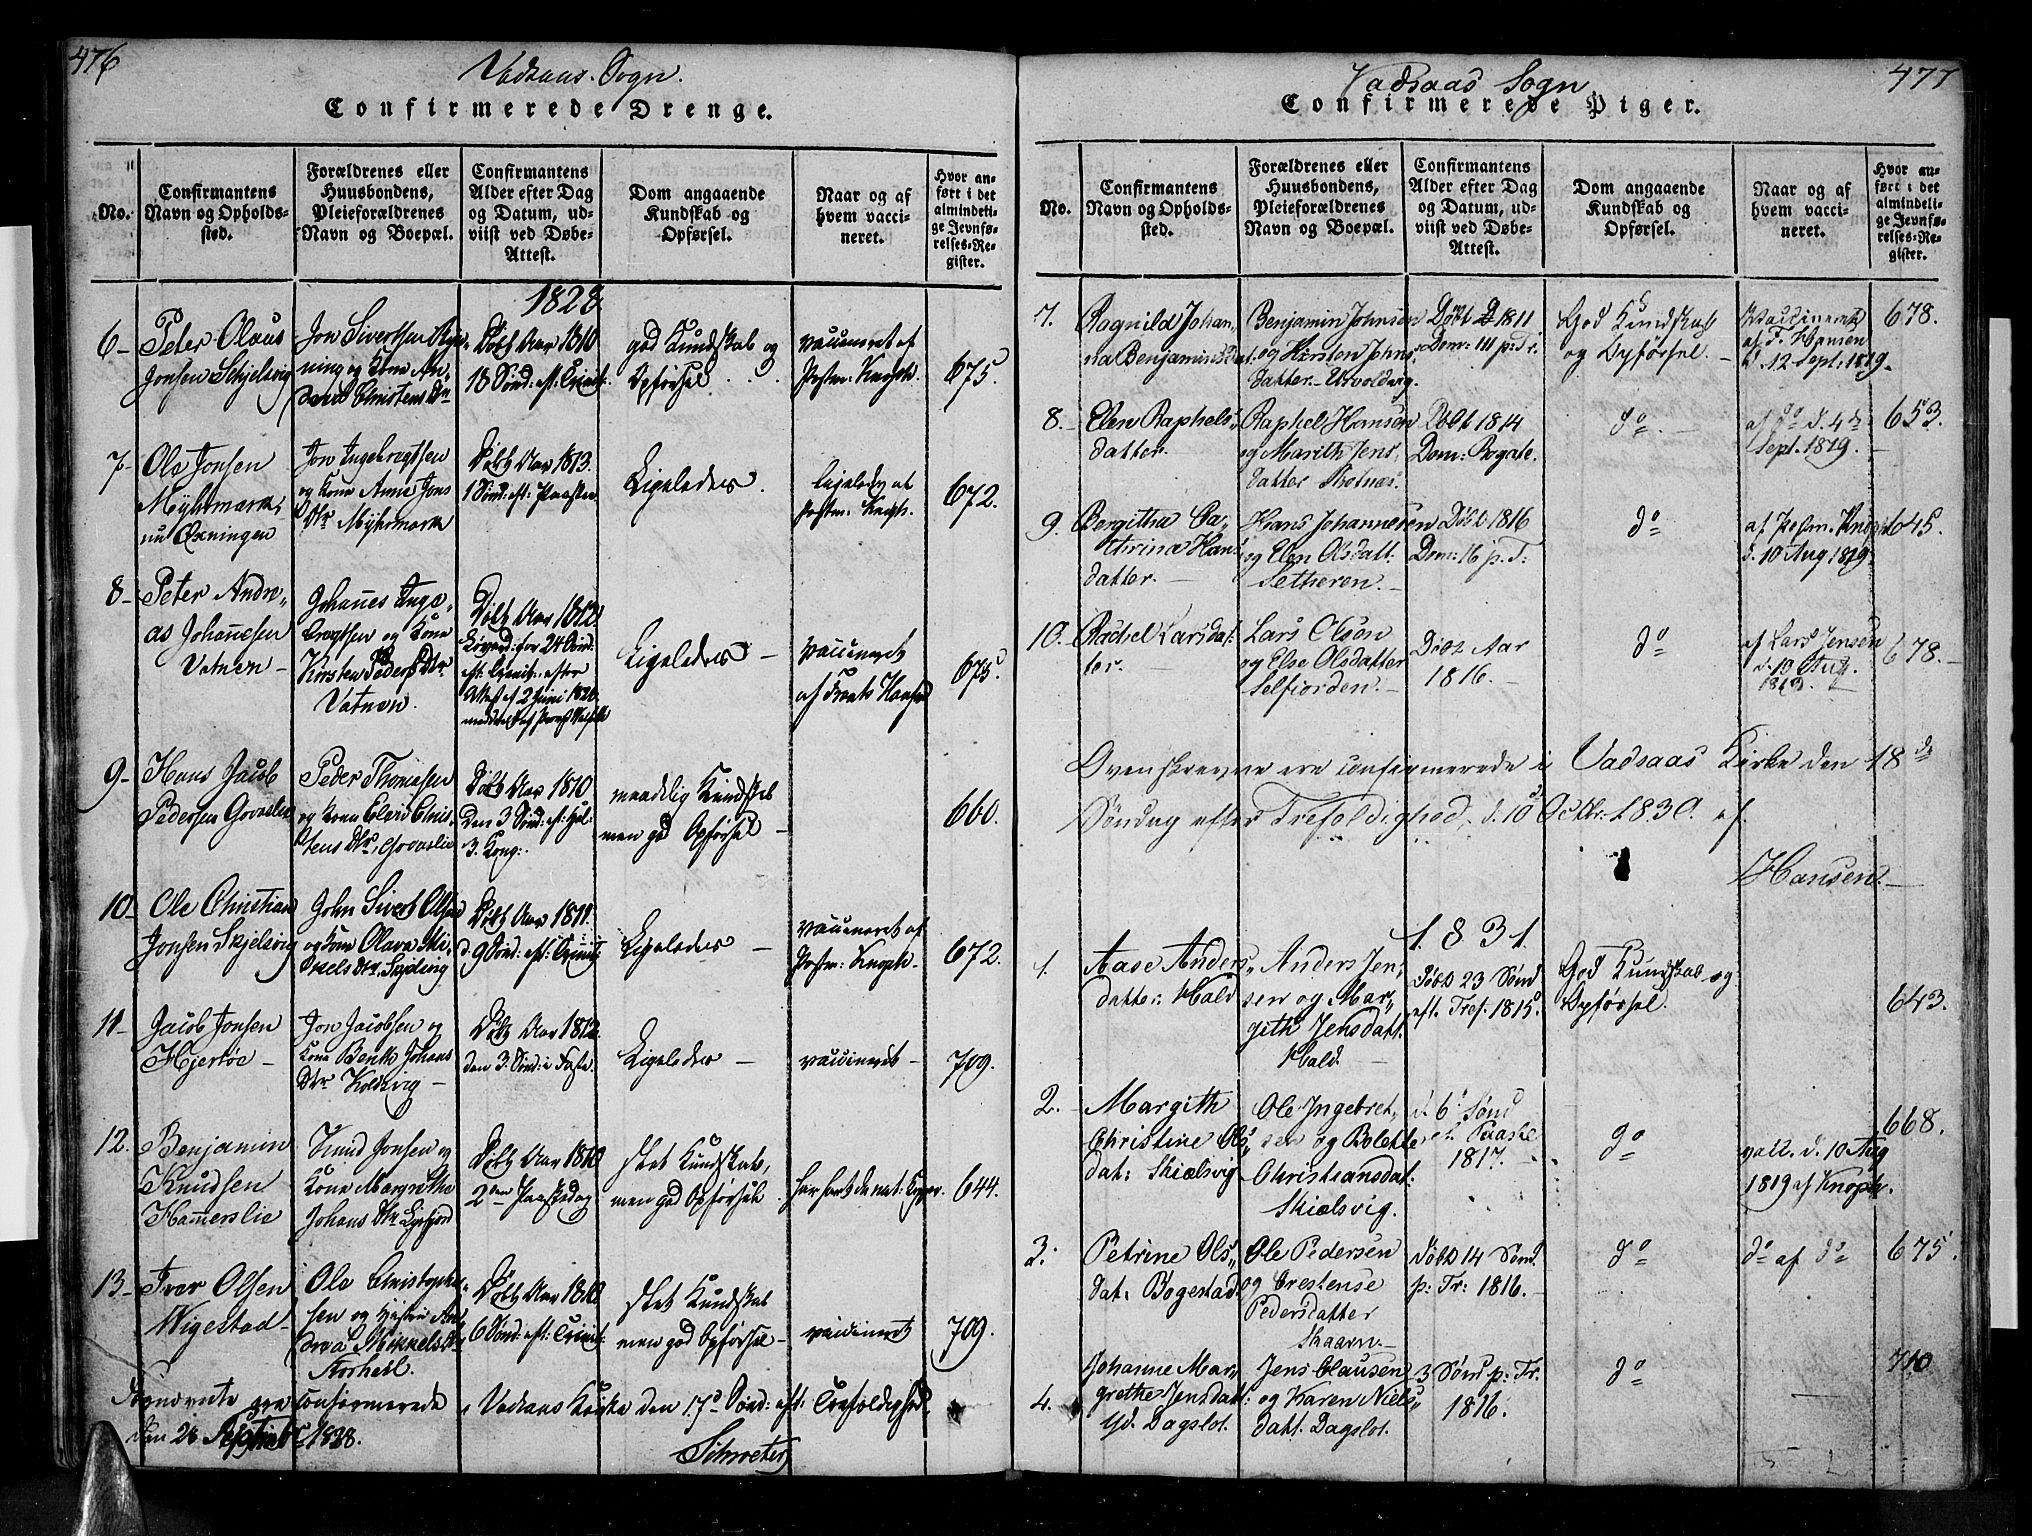 476
Vadsaas Sogn.
Confirmerede Drenge.
No.
Confirmantens
Navn og Opholds-
sted.
Forældrenes eller
Huusbondens,
Pleieforældrenes
Navn og Boepæl.
Confirmantens
Alder efter Dag
og Datum, ud-
viist ved Døbe-
Attest.
Dom angaaende
Kundskab og
Opførsel.
Naar og af
hvem vacci-
neret.
Hvor an-
ført i det
almindeli-
ge Jevnfø-
relses-Re-
gister.
1828
6
Peter Olaus
Jonsen Skjelsvig
Jon Sivertsen
og Kone An
Døbt Aar 1810
18 Sønd: eft: Trinit:
god Kundskab og
Opførsel
vaccineret af
Pastor: Knoph.
675.
7
Ole Jonsen
Myhrmark,
nu Øxningen
Jon Ingebrigtsen
og Kone Anne Jons
Dtr Myhrmark
Døbt Aar 1813.
1 Sønd: eft: Paaske
Ligeledes
ligeledes af
Pastor: Knoph.
672.
8
Peter Andre,,
as Johannesen
Vatnen
Johannes Inge,,
brigtsen og Kone
Kirsten Peders Dtr
Vatnen.
Døbt Aar 1812
Løverd: før 24 Sønd:
eft. Trinit: efter
Attest af 2 Juni 1820
Ligeledes
vaccineret
af Hansen
675
9
Hans Jacob
Pedersen
Peder Thomesen
og Kone Elen Chris
tens Dtr,
Døbt Aar 1810
Den 3 Sønd: eft: Hel:
3. Kong:
maadelig Kundskab
men god Opførsel
660.
10
Ole Christian
Jonsen Skjelsvig
John Sivert Olsen
og Kone Olava Mi
kels Dtr, Skjelsvig
Døbt Aar 1811.
d. 9 Sønd: eft: Trinit
Ligeledes
vaccineret af
Pastor: Knoph
672.
11
Jacob Jonsen
Hjertøe
Jon Jacobsen og
Kone Berith Johans
Dtr Holdsvig
Døbt Aar 1812.
den 3 Sønd: i Faste.
Ligeledes
vaccineret
709.
12.
Benjamin
Knudsen
Hamerslie
Knud Jonsen og
Kone Margrethe
Johans Dtr
Døbt Aar 1810
2den Paaskedag
slet Kundskab,
men god Opførsel
har havt de nat. Kopper
644.
13
Iver Olsen
Wigestad
Ole Christophe
sen og Hustru An
drea Mikkels Dtr
Storhell.
Døbt Aar 1810
6 Sønd: eft: Trinit:
slet Kundskab
men god Opførsel
vaccineret
709.
ere confirmerede i Vadsaas Kirke den 17d Sønd: eft: Trefoldighed,
den 28 September 1828.
Schroeter
477
Vadsaas Sogn
Confirmerede Piger.
No.
Confirmantens
Navn og Opholds-
sted.
Forældrenes eller
Huusbondens,
Pleieforældrenes
Navn og Boepæl.
Confirmantens
Alder efter Dag
og Datum, ud-
viist ved Døbe-
Attest.
Dom angaaende
Kundskab og
Opførsel.
Naar og af
hvem vacci-
neret.
Hvor an-
ført i det
almindeli-
ge Jevnfø-
relses-Re-
gister.
7.
Ragnild Johan,,
na Benjaminsdat.
Benjamin Johnsen
og Kirsten Johns
datter Urvoldvig.
Døbt 1811
Dom: III p: Tr.
God Kundskab
og Opførsel.
Vaccineret
af F. Hansen
d. 12 Sept. 1819.
678.
8.
Elen Raphels,,
datter.
Raphel Hansen
og Marith Jens,,
datter Tholnæs.
Døbt 1814
Dom: Rogate.
do
af do d. 4de
Sept. 1819.
653.
9.
Bergitha Ca,,
thrina Hans
datter.
Hans Johannesen
og Elen Olsdatt.
Setheren.
Døbt 1816
Dom: 16 p. T.
do
af Pastm. Knoph
d. 10 Aug 1819
645.
10.
Rachel Larsdat,,
ter.
Lars Olsøn
og Else Olsdatter
Selfiorden.
Døbt Aar
1816.
do
af Lars Jensen
d. 10 Aug.
678.
Ovenskrevne ere confirmerede i Vadsaas Kirke den 18de
Søndag efter Trefoldighed, d. 10 Octbr: 1830. af
Hansen.
1831.
1.
Aase Anders,,
datter: Hald
Anders Jen,,
sen og Mar,,
gith Jensdatt.
Hald.
Døbt 23 Sønd
eft. Tref. 1815.
God Kundskab og
Opførsel.
643.
2.
Margith
Christine Ols,,
dat: Skielsvig
Ole Ingebret,,
sen og Bolette
Christiansdat:
Skielsvig.
d. 6 Sønd
ef. Paaske
1817.
do
vacc. d. 10 Aug
1819 af Knoph.
668.
3.
Petrine Ols,,
dat: Bogestad
Ole Pedersen
og Crestense
Pedersdatter
Skaarn.
Døbt 14 Sønd.
p: Tr: 1816.
do
do af do
675.
4.
Johanne Mar,,
grethe Jensdatt:
Yd. Dagslot.
Jens Clausen
og Karen Niels,,
datt. Dagslot.
3 Sønd p: Tr.
1816.
do
710